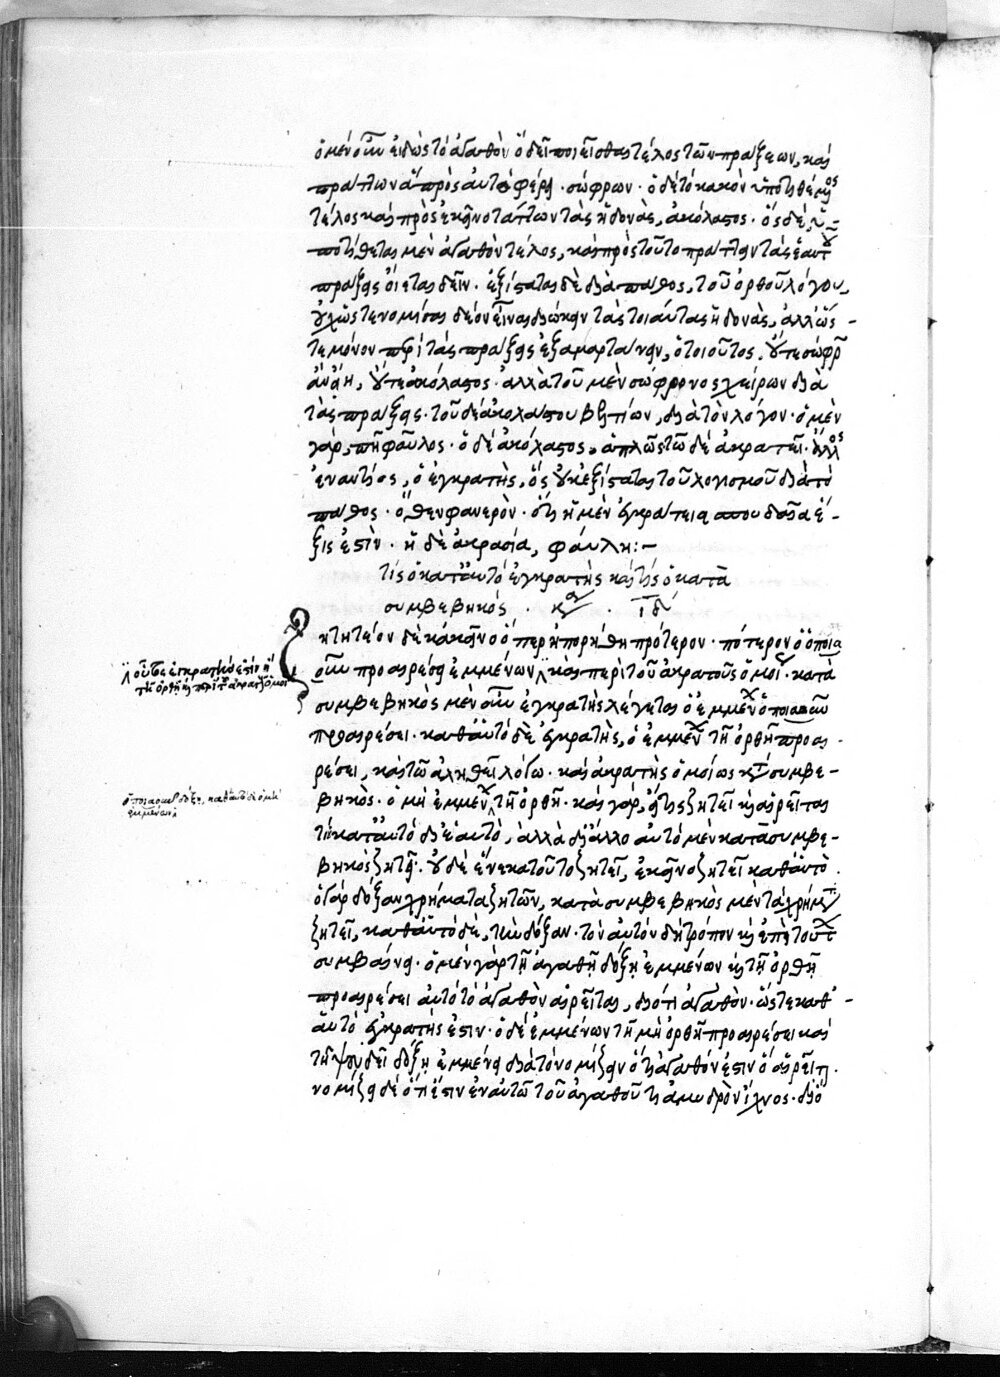 ὁ μὲν οὖν εἰδὼς τὸ ἀγαθὸν ὃ δεῖ ποιεῖσθαι τέλος τῶν πράξεων, καὶ
πράττων ἃ πρὸς αὐτὸ φέρει· σώφρων· ὁ δὲ τὸ κακὸν ὑποτιθέμενος
τέλος καὶ πρὸς ἐκεῖνο τάττων τὰς ἡδονὰς, ἀκόλαστος· ὃς δὲ ὑ-
ποτίθεται μὲν ἀγαθὸν τέλος, καὶ πρὸς τοῦτο πράττειν τὰς ἑαυτοῦ
πράξεις οἴεται δεῖν· ἐξίσταται δὲ διὰ πάθος, τοῦ ὀρθοῦ λόγου,
οὐχ ὥστε νομίσαι δέον εἶναι διώκειν τὰς τοιαύτας ἡδονὰς, ἀλλ' ὥσ-
τε μόνον περὶ τὰς πράξεις ἐξαμαρτάνειν, ὁ τοιοῦτος, οὔτε σώφρων
ἂν εἴη, οὔτε ἀκόλαστος· ἀλλὰ τοῦ μὲν σώφρονος χείρων διὰ
τὰς πράξεις· τοῦ δὲ ἀκολάστου βελτίων, διὰ τὸν λόγον· ὁ μὲν
γάρ, πῇ φαῦλος· ὁ δὲ ἀκόλαστος, ἁπλῶς τῶ δὲ ἀκρατεῖ· ἄλλος
ἐναντίος, ὁ ἐγκρατὴς, ὃς οὐκ ἐξίσταται τοῦ λογισμοῦ διὰ τὸ
πάθος· ὅθεν φανερὸν· ὅτι ἡ μὲν ἐγκράτεια σπουδαία ἕ-
ξις ἐστὶν· ἡ δὲ ἀκρασία, φαύλη:—
τίς ὁ κατ' αὐτὸ ἐγκρατὴς καὶ τίς ὁ κατὰ
συμβεβηκός·
ζητητέον δὲ κἀκεῖνο ὅπερ ἠπορήθη πρότερον· πότερον ὁ ὁποία
οὖν προαιρέσει ἐμμένων καὶ περὶ τοῦ ἀκρατοῦς ὁμοίως· κατὰ
συμβεβηκὸς μὲν οὖν ἐγκρατὴς λέγεται ὁ ἐμμένων ὁποιαοῦν
προαιρέσει· καθ' αὑτὸ δὲ ἐγκρατὴς, ὁ ἐμμένων τῇ ὀρθῇ προαι-
ρέσει, καὶ τῶ ἀληθεῖ λόγω· καὶ ἀκρατὴς ὁμοίως κατὰ συμβε-
βηκὸς· ὁ μὴ ἐμμένων τῇ ὀρθῇ· καὶ γάρ, εἴ τις ζητεῖ καὶ αἱρεῖται
τι κατ' αὐτὸ δι' ἑαυτὸ, ἀλλὰ δι' ἄλλο αὐτὸ μὲν κατὰ συμβε-
βηκὸς ζητεῖ· οὗ δὲ ἕνεκα τοῦτο ζητεῖ, ἐκεῖνο ζητεῖ καθ' αὑτὸ·
ὁ γὰρ δόξαν χρήματα ζητῶν, κατὰ συμβεβηκὸς μὲν τὰ χρήματα
ζητεῖ, καθ' αὑτὸ δὲ, τὴν δόξαν· τὸν αὐτὸν δὴ τρόπον καὶ ἐπὶ τούτων
συμβαίνει· ὁ μὲν γὰρ τῇ ἀγαθῇ δόξῃ ἐμμένων καὶ τῇ ὀρθῇ
προαιρέσει αὐτὸ τὸ ἀγαθὸν αἱρεῖται, διότι ἀγαθὸν· ὥστε καθ'-
αὑτὸ ἐγκρατής ἐστιν· ὁ δὲ ἐμμένων τῇ μὴ ὀρθῇ προαιρέσει καὶ
τῇ ψευδεῖ δόξῃ ἐμμένει διὰ τὸ νομίζειν ὅτι ἀγαθόν ἐστιν ὃ αἱρεῖται·
νομίζει δὲ ὅτι ἐστὶν ἐν αὐτῶ τοῦ ἀγαθοῦ τι ἀμυδρὸν ἴχνος· διὸ
ὁποιαοῦν δόξῃ, καθ' αὑτὸ δὲ ὁ μὴ
ἐμμένων